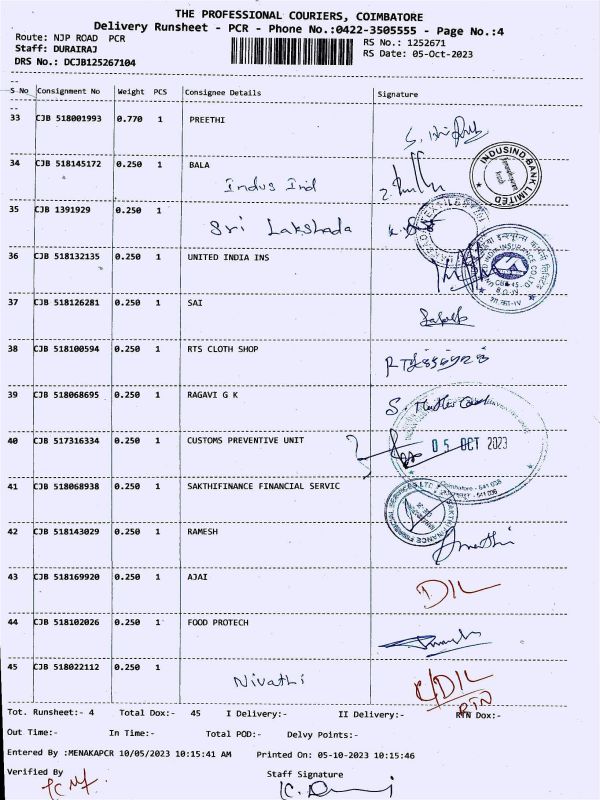 THE PROFESSIONAL COURIERS, COIMBATORE
Delivery Runsheet - PCR - Phone No.:0422-3505555 - Page No.:4
Route: NJP ROAD PCR
RS No.: 1252671
Staff: DURAIRAJ
RS Date: 05-Oct-2023
DRS No.: DCJB125267104
S No Consignment No Weight PCS Consignee Details Signature
33 CJB 518001993 0.770 1 PREETHI
34 CJB 518145172 0.250 1 BALA
Indus Ind
INDUSIND BANK LIMITED
35 CJB 1391929 0.250 1
Sri Lakshada
36 CJB 518132135 0.250 1 UNITED INDIA INS
37 CJB 518126281 0.250 1 SAI
38 CJB 518100594 0.250 1 RTS CLOTH SHOP
39 CJB 518068695 0.250 1 RAGAVI G K
40 CJB 517316334 0.250 1 CUSTOMS PREVENTIVE UNIT
05 OCT 2023
Coimbatore - 641 018
41 CJB 518068938 0.250 1 SAKTHIFINANCE FINANCIAL SERVIC
42 CJB 518143029 0.250 1 RAMESH
43 CJB 518169920 0.250 1 AJAI
D/L
44 CJB 518102026 0.250 1 FOOD PROTECH
45 CJB 518022112 0.250 1
Nivathi
C/D/L
RTN
Tot. Runsheet:- 4 Total Dox:- 45 I Delivery:- II Delivery:- RTN Dox:-
Out Time:- In Time:- Total POD:- Delvy Points:-
Entered By :MENAKAPCR 10/05/2023 10:15:41 AM Printed On: 05-10-2023 10:15:46
Verified By Staff Signature